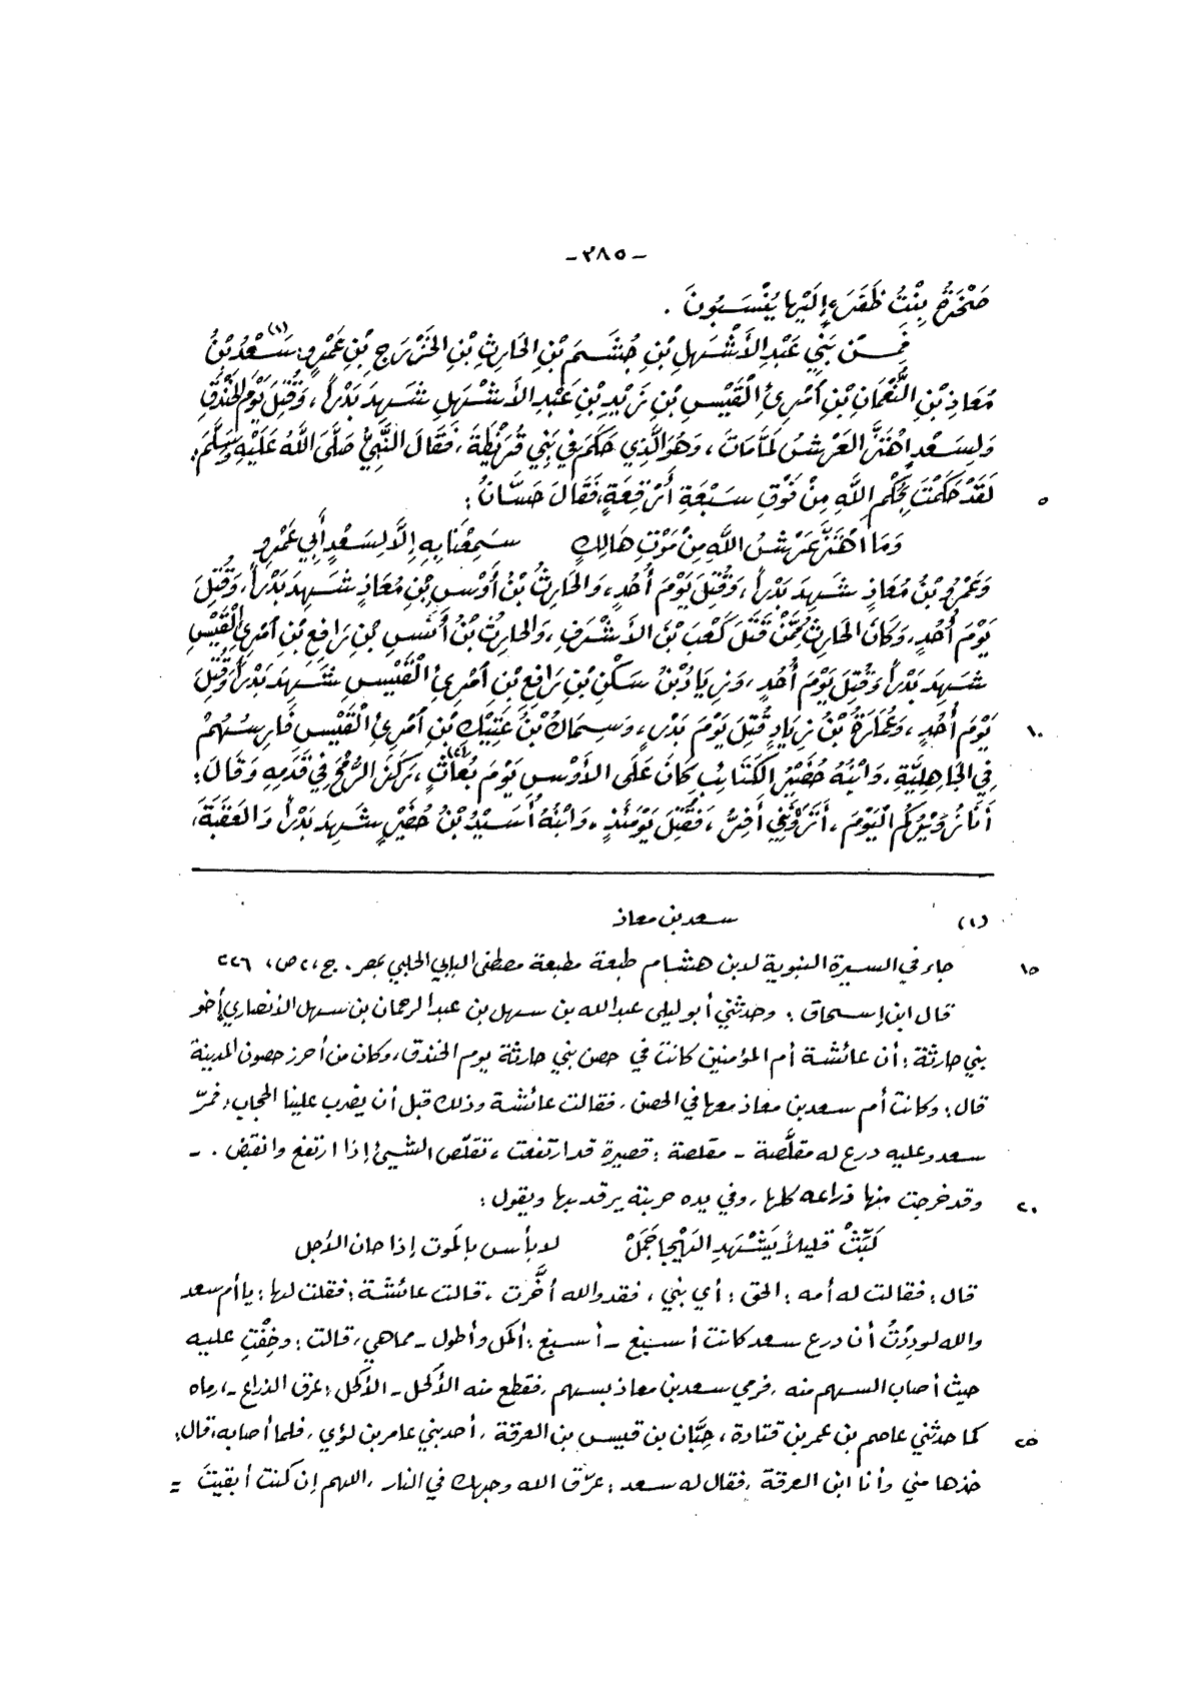 -٣٨٥-
صَخْرَةُ بِنْتُ ظَفَرَ، إِلَيْهَا يُنْسَبُونَ .
فَمِنْ بَنِي عَبْدِ الأَشْهَلِ بْنِ جُشَمَ بْنِ الحَارِثِ بْنِ الخَزْرَجِ بْنِ عَمْرٍو: سَعْدُ بْنُ (١)
مُعَاذِ بْنِ النُّعْمَانِ بْنِ امْرِئِ القَيْسِ بْنِ زَيْدِ بْنِ عَبْدِ الأَشْهَلِ شَهِدَ بَدْراً، وَقُتِلَ يَوْمَ الخَنْدَقِ
وَلِسَعْدٍ اهْتَزَّ العَرْشُ لَمَّا مَاتَ، وَهُوَ الَّذِي حَكَمَ فِي بَنِي قُرَيْظَةَ، فَقَالَ النَّبِيُّ صَلَّى اللَّهُ عَلَيْهِ وَسَلَّمَ:
لَقَدْ حَكَمْتَ بِحُكْمِ اللَّهِ مِنْ فَوْقِ سَبْعَةِ أَرْقِعَةٍ، فَقَالَ حَسَّانُ: ٥
وَمَا اهْتَزَّ عَرْشُ اللَّهِ مِنْ مَوْتِ هَالِكٍ سَمِعْنَا بِهِ إِلَّا لِسَعْدٍ أَبِي عَمْرِو
وَعَمْرُو بْنُ مُعَاذٍ شَهِدَ بَدْراً، وَقُتِلَ يَوْمَ أُحُدٍ، وَالحَارِثُ بْنُ أَوْسِ بْنِ مُعَاذٍ شَهِدَ بَدْراً، وَقُتِلَ
يَوْمَ أُحُدٍ، وَكَانَ الحَارِثُ مِمَّنْ قَتَلَ كَعْبَ بْنَ الأَشْرَفِ، وَالحَارِثُ بْنُ أَنَسِ بْنِ رَافِعِ بْنِ امْرِئِ القَيْسِ
شَهِدَ بَدْراً وَقُتِلَ يَوْمَ أُحُدٍ، وَزِيَادُ بْنُ سَكَنِ بْنِ رَافِعِ بْنِ امْرِئِ القَيْسِ شَهِدَ بَدْراً وَقُتِلَ
يَوْمَ أُحُدٍ، وَعُمَارَةُ بْنُ زِيَادٍ قُتِلَ يَوْمَ بَدْرٍ، وَسِمَاكُ بْنُ عَتِيْكِ بْنِ امْرِئِ القَيْسِ فَارِسُهُمْ ١٠
فِي الجَاهِلِيَّةِ، وَابْنُهُ حُضَيْرُ الكَتَائِبِ كَانَ عَلَى الأَوْسِ يَوْمَ بُعَاثٍ، رَكَزَ الرُّمْحَ فِي قَدَمِهِ وَقَالَ:
أَنَا زُوَيْرُكُمُ اليَوْمَ، أَتَرَوْنِي أَفِرُّ، فَقُتِلَ يَوْمَئِذٍ، وَابْنُهُ أُسَيْدُ بْنُ حُضَيْرٍ شَهِدَ بَدْراً وَالعَقَبَةَ،
(١) سعد بن معاذ
جاء في السيرة النبوية لابن هشام طبعة مطبعة مصطفى البابي الحلبي بمصر. ج،٢ ص، ٢٢٦ ١٥
قال ابن إسحاق: وحدثني أبو ليلى عبدالله بن سهل بن عبدالرحمان بن سهل الأنصاري أخو
بني حارثة: أن عائشة أم المؤمنين كانت في حصن بني حارثة يوم الخندق، وكان من أحرز حصون المدينة
قال: وكانت أم سعد بن معاذ معها في الحصن، فقالت عائشة وذلك قبل أن يضرب علينا الحجاب: فمرّ
سعد وعليه درع له مقلَّصة - مقلصة: قصيرة قد ارتفعت، تقلّص الشيئ إذا ارتفع وانقبض. -
وقد خرجت منها ذراعه كلها، وفي يده حربة يرقد بها ويقول: ٢٠
لَبِّثْ قليلاً يَشْهَدِ الهَيْجا جَمَلْ لا بأس بالموت إذا حان الأجل
قال: فقالت له أمه: الحق: أي بني، فقد والله أخَّرت، قالت عائشة: فقلت لها: يا أم سعد
والله لودِدْتُ أن درع سعد كانت أسبغ - أسبغ: أكمل وأطول - مما هي، قالت: وخِفْتِ عليه
حيث أصاب السهم منه، فرمي سعد بن معاذ بسهم، فقطع منه الأكحل - الأكحل: عرق الذراع -، رماه
كما حدثني عاصم بن عمر بن قتادة، حِبَّان بن قيس بن العرقة، أحد بني عامر بن لؤي، فلما أصابه، قال: ٢٥
خذها مني وأنا ابن العرقة، فقال له سعد: عرّق الله وجهك في النار، اللهم إن كنت أبقيتَ =